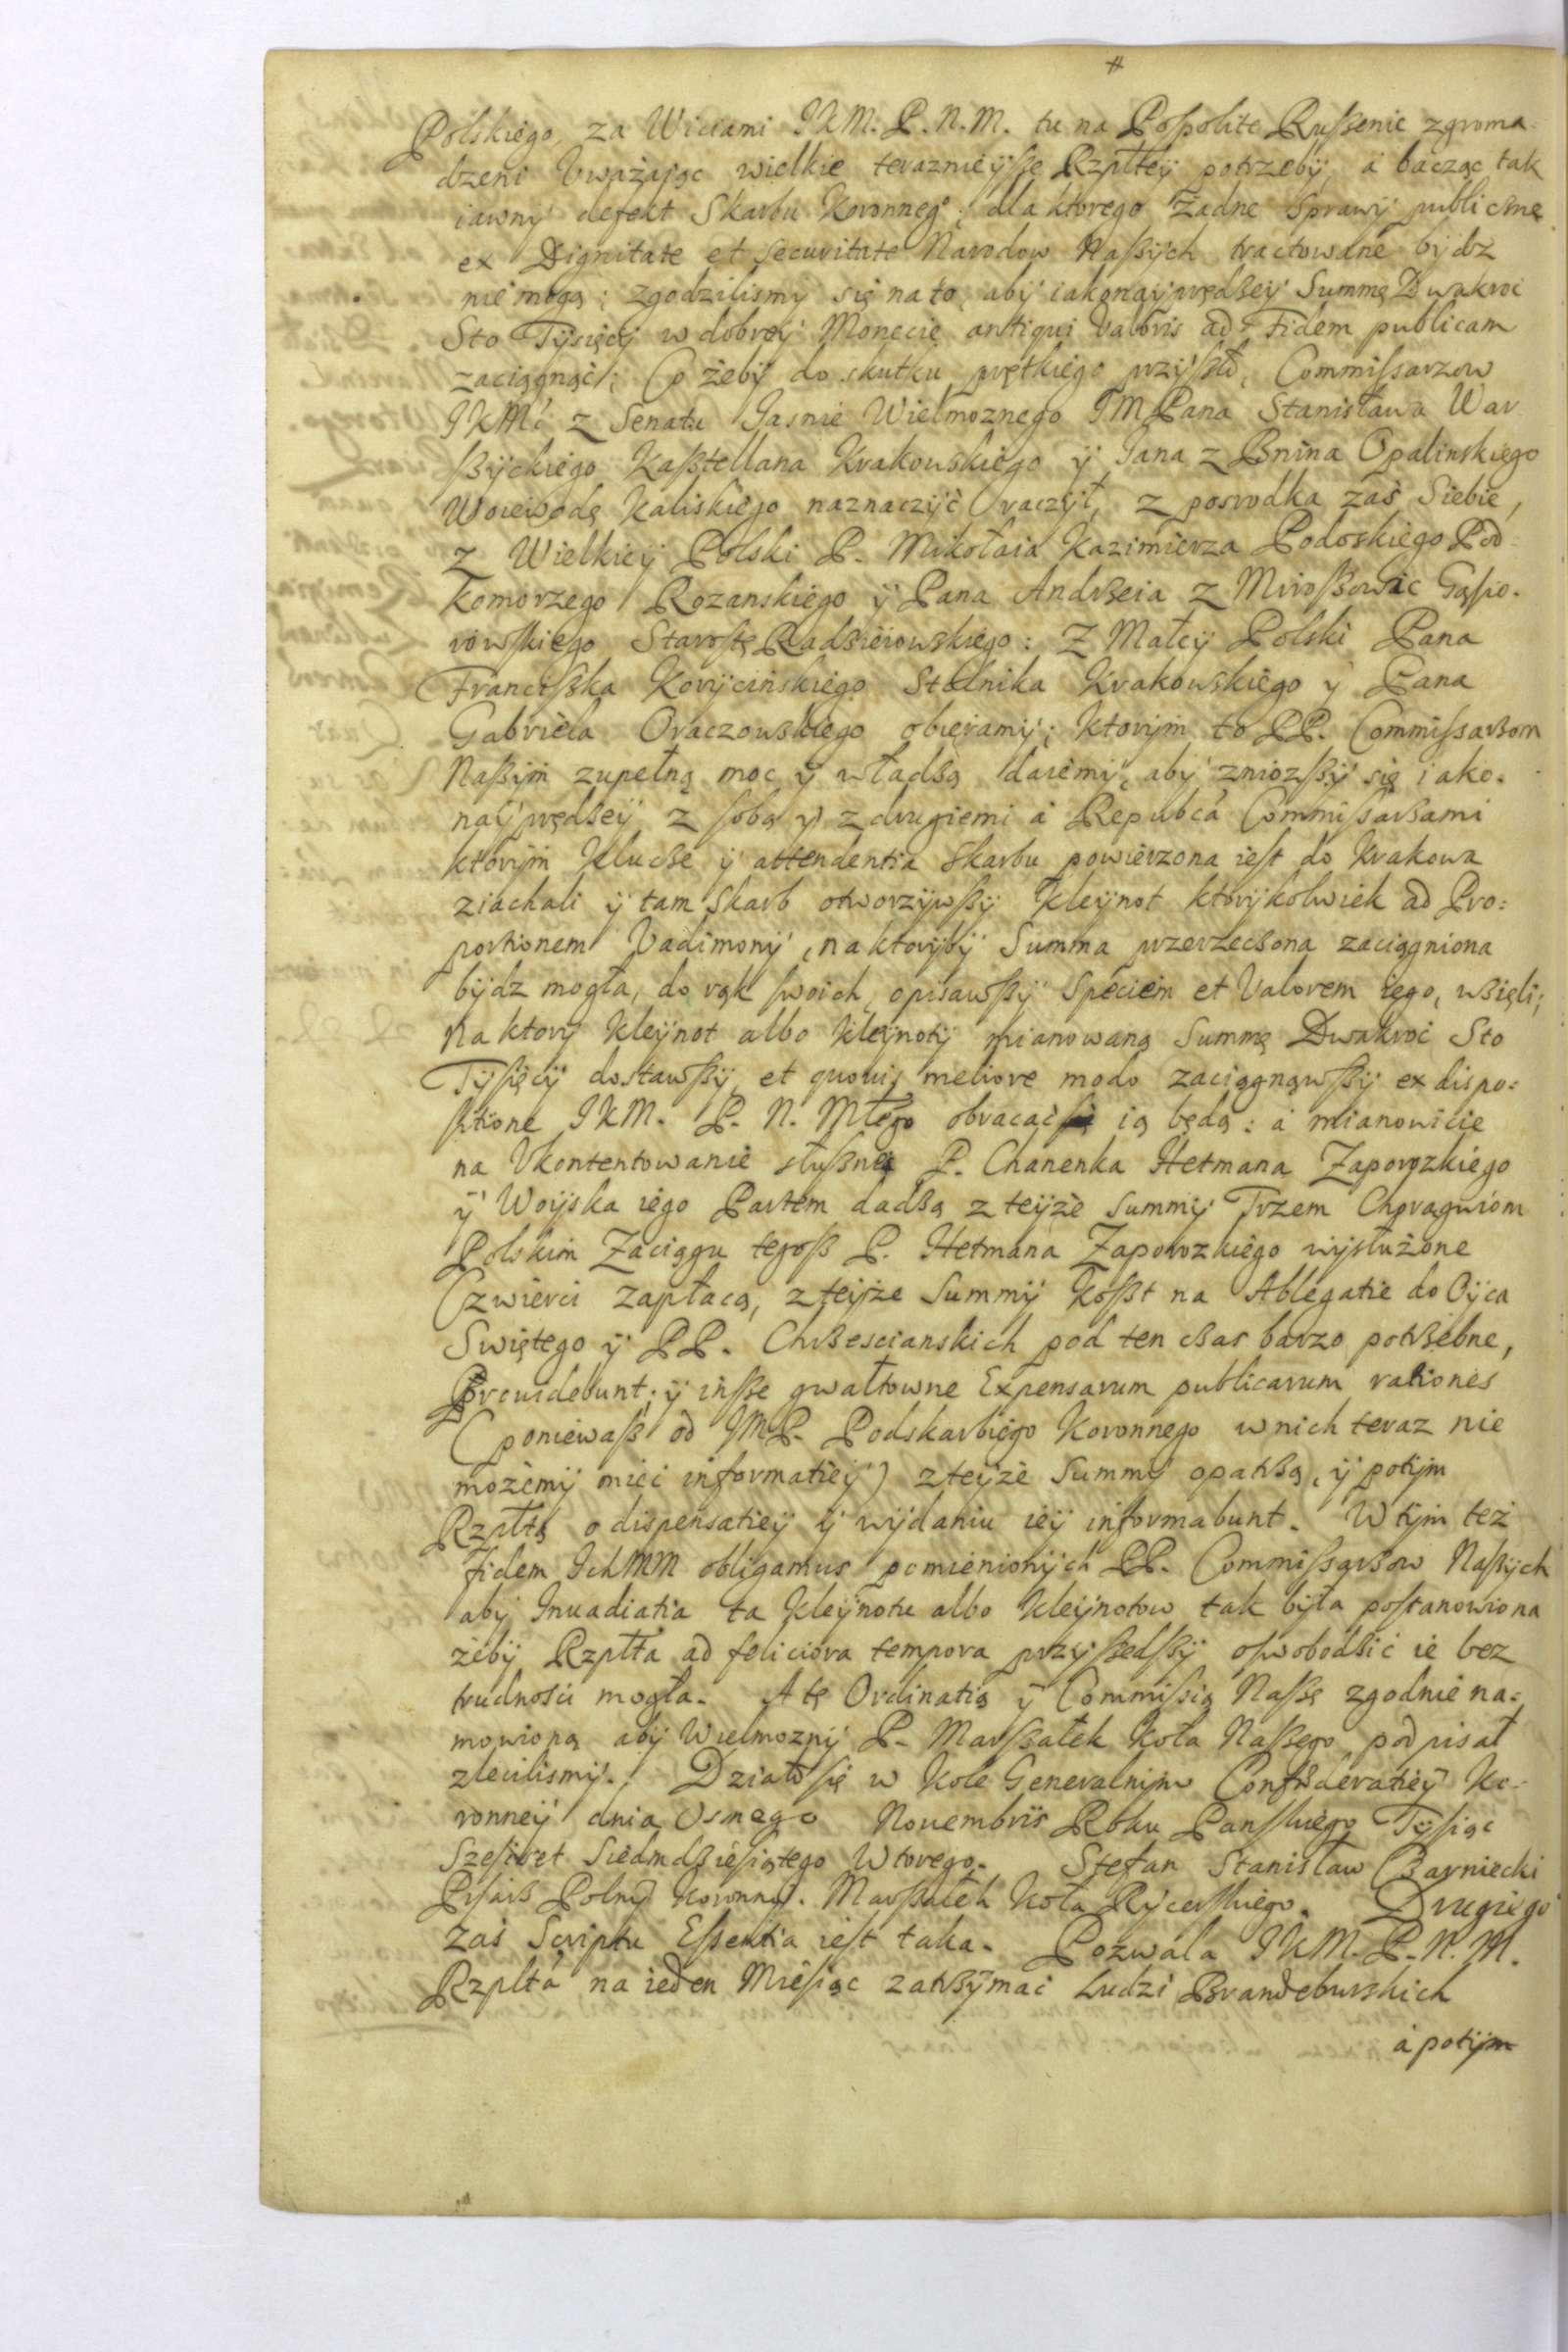 #
Polskiego, za Wiciami IKM. P. N. M. tu na Pospolite Rußenie zgroma-
dzeni Vważaiąc wielkie teraznieÿße Rzplteÿ potrzebÿ, á bacząc tak
iawnÿ defekt Skarbu Koronneg°; dla ktorego Żadne Sprawÿ publiczne
ex Dignitate et securitate Narodow Naßÿch tractowane bÿdz
nié mogą; zgodzilismy się na to, abÿ iakonaÿprędzeÿ Summę Dwakroć
Sto Tÿsięcÿ w dobreÿ Monecie antiqui valoris ad Fidem publicam
zaciągnąć; Co żebÿ do skutku prętkiego przÿßło, Commißarzow
IKMć z Senatu Jasnie Wielmoznego IM Pana Stanisława War
ßÿckiego Kaßtellana Krakowskiego ÿ Jana z Bnina Opalinskiego
Woiewodę Kaliskiego naznaczÿć raczÿł, z posrodka zaś Siebie,
z Wielkieÿ Polski P. Mikołaia Kazimierza Podoskiego Pod-
komorzego Rozanskiego ÿ Pana Andrzeia z Miroßowic Gąsio-
rowskiego Starostę Radzieiowskiego: Z Małeÿ Polski Pana
Francißka Korÿcińskiego Stolnika Krakowskiego ÿ Pana
Gabriela Oraczowskiego obieramÿ; ktorÿm to PP. Commißarzom
Naßÿm zupełną moc ÿ władzą daiemÿ, abÿ zniozßÿ się iako-
naÿprędzeÿ z sobą ÿ z drugiemi á Republcá Commißarzami
ktorÿm Klucze ÿ attendentia Skarbu powierzona iest do Krakowa
ziachali ÿ tam Skarb otworzÿwßÿ Kleÿnot ktorÿkolwiek ad Pro=
portionem Vadimonÿ, na ktorÿbÿ Summa przerzeczona zaciągniona
bÿdz mogła, do rąk swoich, opisawßÿ Speciem et Valorem iego, wzięli;
na ktorÿ Kleÿnot albo Kleÿnotÿ mianowaną Summę Dwakroć Sto
Tÿsięcÿ dostawßÿ, et quouis meliore modo zaciągnąwßÿ ex dispo=
sitione IKM. P. N. Młgo obracać ią będą: á mianowicie
na Vkontentowanie słußne P. Chanenka Hetmana Zaporozkiego
ÿ Woÿska iego Partem dadzą z teÿże Summÿ Trzem Chorągwiom
Polskim Zaciągu tegoß P. Hetmana Zaporozkiego wÿsłużone
Czwierci zapłacą, z teÿże Summÿ koßt na Ablegatie do Oÿca
Swiętego ÿ PP. Chrzescianskich pod ten czas barzo potrzebne,
Prouidebunt; ÿ inße gwałtowne Expensarum publicarum rationes
(poniewaß od IMP. Podskarbiego Koronnego w nich teraz nie
możemÿ mieć informatieÿ) z teÿże Summÿ opatrzą, ÿ potÿm
Rzpltą o dispensatieÿ ÿ wÿdaniu ieÿ informabunt. W tÿm też
fidem IchMM obligamus pomienionÿch PP. Commißarzow Naßÿch
abÿ Inuadiatia ta Kleÿnotu albo Kleÿnotow tak bÿła postanowiona
żebÿ Rzplta ad feliciora tempora przÿßedßÿ oswobodzić ie bez
trudności mogła. A tę Ordinatią ÿ Commißią Naßę zgodnie na=
mowioną abÿ Wielmoznÿ P. Marßałek Koła Naßego podpisał
zlecilismÿ. Działo się w Kole Generalnÿm Confoederatieÿ Ko-
ronneÿ dnia Osmego Nouembris Roku Panskiego Tÿsiąc
Szescset Siedmdziesiątego Wtorego. Stefan Stanisław Czarniecki
Pisarz Polnÿ Koronnÿ. Marßałek Koła Rÿcerskiego. Drugiego
zaś Scriptu Essentia iest taka. Pozwala IKM. P. N. M.
Rzpltá na ieden Miesiąc zatrzÿmać Ludzi Brandeburskich
á potÿm